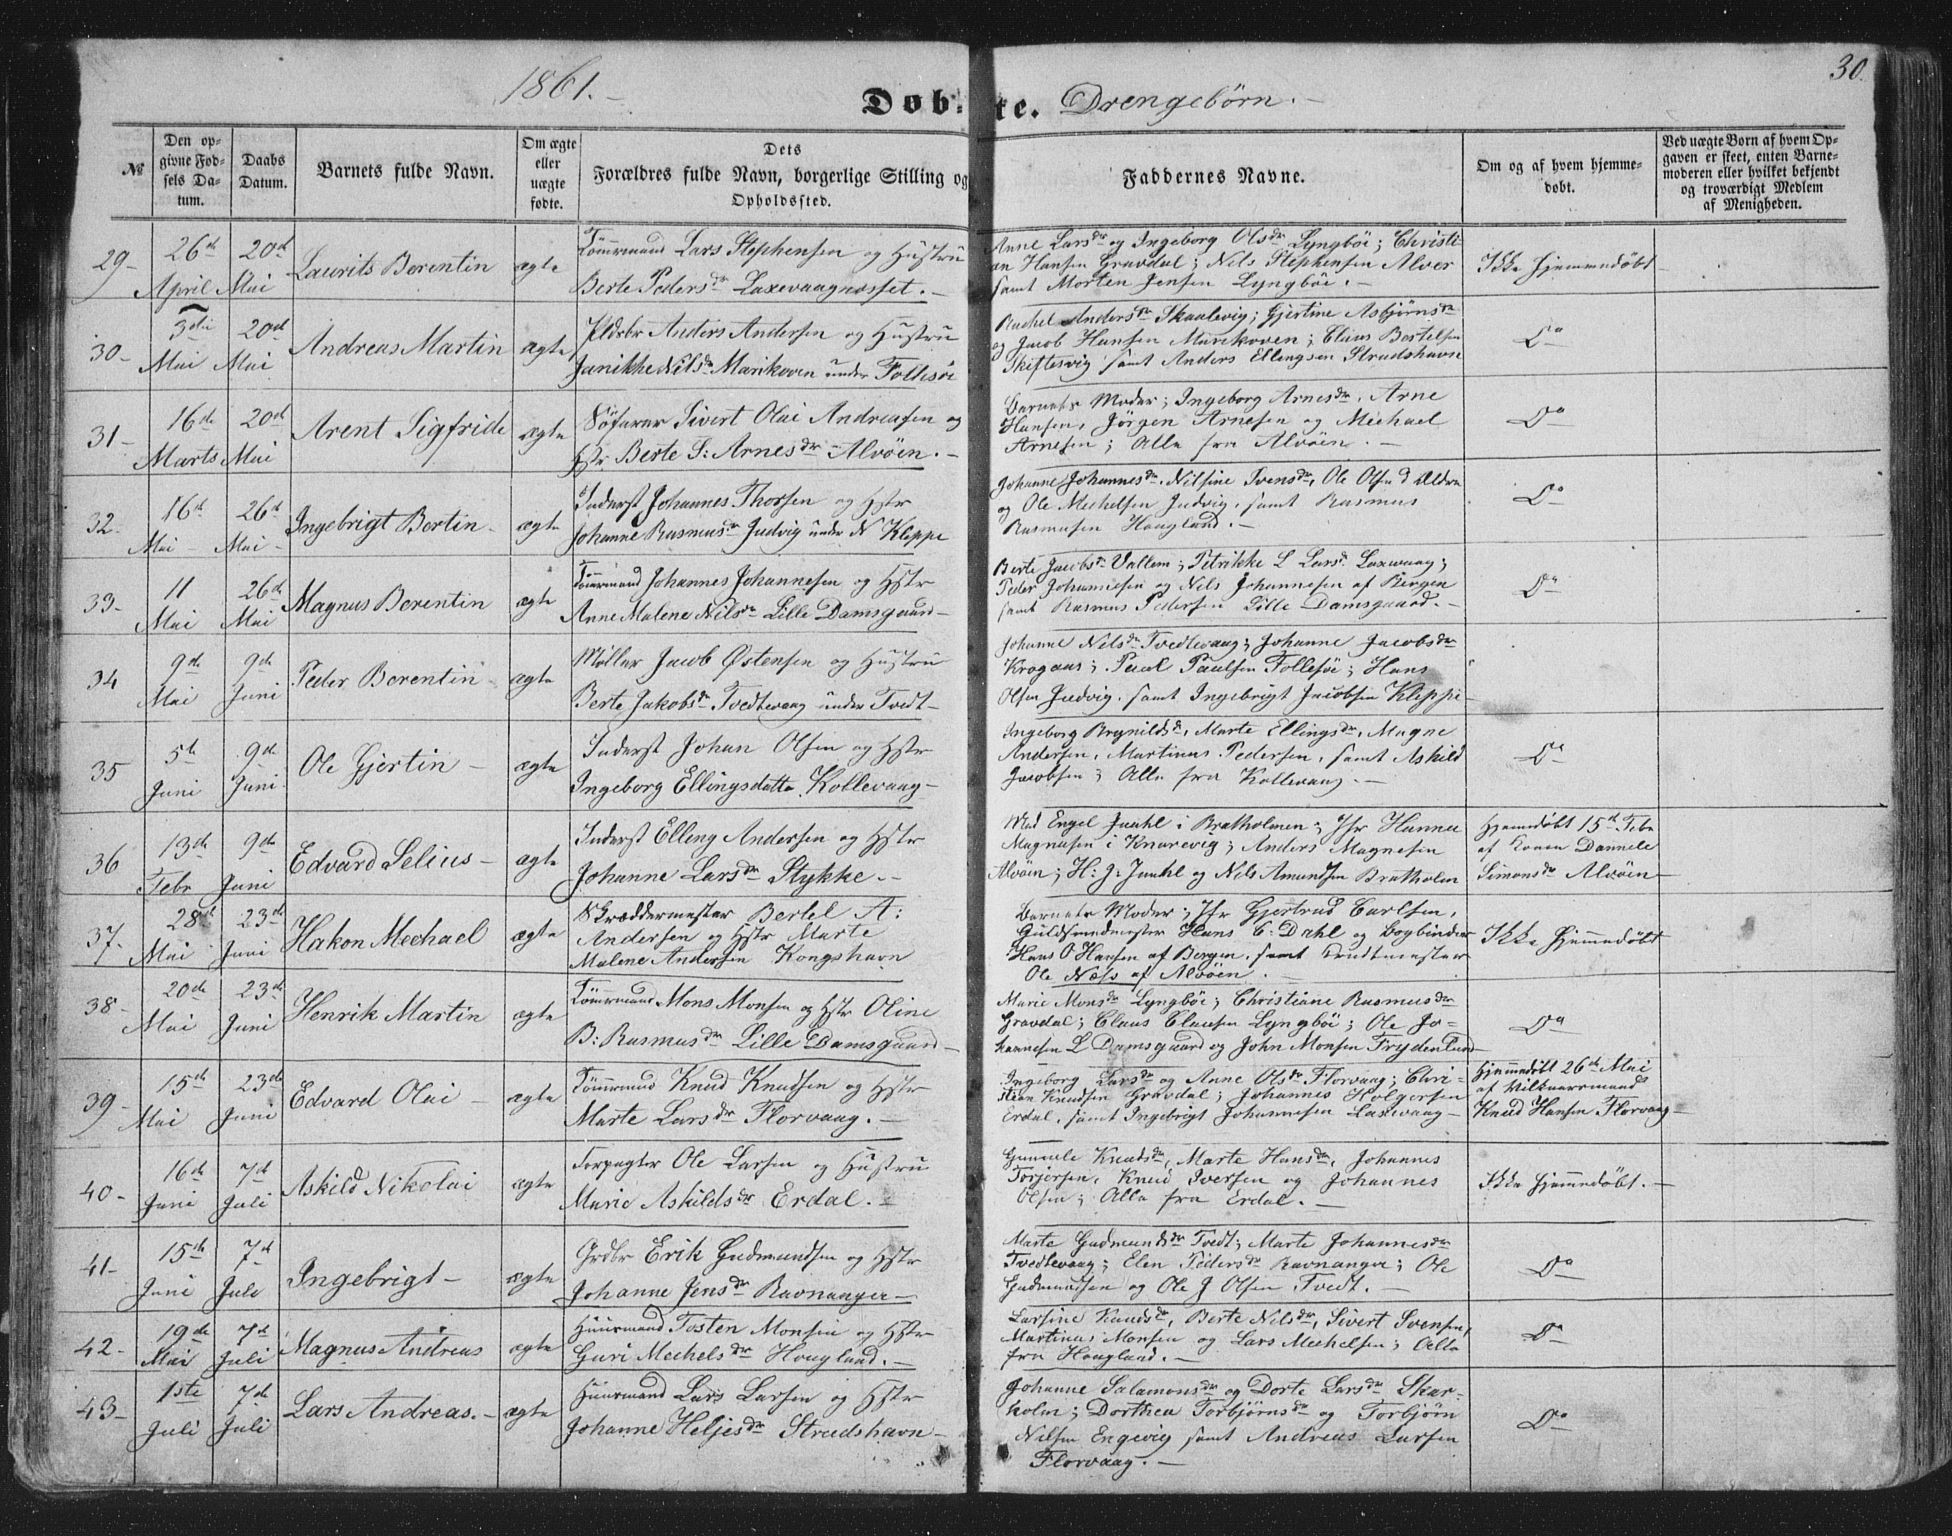 1861.-
30.
Døb- te. Drengebørn.-
№
Den opgivne Fødsels Datum.
Daabs Datum.
Barnets fulde Navn.
Om ægte eller uægte fødte.
Dets Forældres fulde Navn, borgerlige Stilling og Opholdssted.
Faddernes Navne.
Om og af hvem hjemmedøbt.
Ved uægte Børn af hvem Opgaven er skeet, enten Barnemoderen eller hvilket bekjendt og troværdigt Medlem af Menigheden.
29- 26de April 20de Mai Laurits Berentin ægte
Tømrmand Lars Stephensen og Hustru
Berte Pedersdr Laxevaagnæsset.-
Anne Larsdr og Ingeborg Olsdr Lyngböe; Christi-
an Hansen Gravdal; Nils Stephensen Alver
samt Morten Jensen Lyngböe.-
Ikke hjemmedöbt
30- 3die Mai 20de Mai Andreas Martin ægte
Anders Andersen og Hustru
Janikke Nilsdr Marikoven under Follesöe
Rachel Andersdr Skaalevig; Gjertine Asbjørnsdr
og Jacob Hansen Marikoven; Claus Bertelsen
Skiftesvig samt Anders Ellingsen Strudshavn
Do
31- 16de Marts 20de Mai Arent Sigfride ægte
Söfarer Sivert Olai Andreasen og
Hstr Berte S: Arnesdr Alvöen.-
Barnets Moder; Ingeborg Arnesdr, Arne
Hansen, Jörgen Arnesen og Mechael
Arnesen; Alle fra Alvöen.-
Do
32. 16de Mai 26de Mai Ingebrigt Bertin- ægte
Inderst Johannes Thorsen og Hstr
Johanne Rasmusdr Judvig under N Kleppe
Johanne Johannesdr, Nilsine Svensdr, Ole Olsen d Ældre
og Ole Mechelsen Judvig, samt Rasmus
Rasmusen Haagland.-
Do
33- 11 Mai 26de Mai Magnus Berentin ægte
Tømrmand Johannes Johannesen og Hstr
Anne Malene Nilsdr Lille Damsgaard-
Berte Jacobsdr Vallem; Petrikke L Larsdr Laxevaag;
Peder Johannesen og Nils Johannesen af Bergen
samt Rasmus Pedersen Lille Damsgaard.-
Do
34 9de Mai 9de Juni Peder Berentin- ægte
Møller Jacob Østensen og Hustru
Berte Jakobsdr Tvedtevaag under Tvedt-
Johanne Nilsdr Tvedtevaag; Johanne Jacobsdr
Krogaas; Paul Paulsen Follesöe; Hans
Olsen Judvig, samt Ingebrigt Jacobsen Kleppe-
35 5te Juni 9de Juni Ole Gjertin- ægte
Inderst Johan Olsen og Hstr
Ingeborg Ellingsdatter Kollevaag-
Ingeborg Brynildsdr, Marte Ellingsdr, Magne
Andersen, Martinus Pedersen, samt Askild
Jacobsen; Alle fra Kollevaag.-
Do
36 13de Febr 9de Juni Edvard Selius- ægte
Inderst Elling Andersen og Hstr
Johanne Larsdr Stykke.-
Mad Engel Juuhl i Bratholmen; Jfr Hanna
Magnusen i Knarevig; Anders Magnesen
Alvöen; H: J: Juuhl og Nils Amundsen Bratholm
Hjemmedöbt 15de Febr
af Konen Dannele
Simonsdr Alvöen
37- 28de Mai 23de Juni Hakon Mechael ægte
Skræddermester Bertel A:
Andersen og Hstr Marte
Malene Andersen Kongshavn
Barnets Moder; Jfr Gjertrud Carlsen,
Guldsmedmester Hans C: Dahl og Bogbinder
Hans O Hansen af Bergen, samt Krudtmester
Ole Næss af Alvöen.
Ikke hjemmedöbt
38- 20de Mai 23de Juni Henrik Martin ægte
Tømrmand Mons Monsen og Hstr Oline
B: Rasmusdr Lille Damsgaard-
Marie Monsdr Lyngböe; Christiane Rasmusdr
Gravdal; Claus Clausen Lyngböe; Ole Jo-
hannesen L Damsgaard og John Monsen Frydenlund
Do
39- 15de Mai 23de Juni Edvard Olai- ægte
Tømrmand Knud Knudsen og Hstr
Marte Larsdr Florvaag.-
Ingeborg Larsdr og Anne Olsdr Florvaag; Chri-
stian Knudsen Gravdal; Johannes Holgersen
Erdal, samt Ingebrigt Johannesen Laxevaag-
Hjemmedöbt 26de Mai
af Vilkaarsmand
Knud Hansen Florvaag-
40- 16de Juni 7de Juli Askild Nikolai ægte
Forpagter Ole Larsen og Hustru
Marie Askildsdr Erdal.-
Gunnele Knudsdr, Marte Hansdr, Johannes
Torjersen, Knud Iversen og Johannes
Olsen; Alle fra Erdal.-
Ikke hjemmedöbt.-
41- 15de Juni 7de Juli Ingebrigt- ægte
Grdbr Erik Gudmundsen og Hstr
Johanne Jensdr Ravnanger-
Marte Gudmundsdr Tvedt; Marte Johannesdr
Tvedtevaag; Elen Pedersdr Ravnanger; Ole
Gudmundsen og Ole J Olsen Tvedt.-
Do
42- 19de Mai 7de Juli Magnus Andreas ægte
Huusmand Tosten Monsen og Hstr
Guri Mechelsdr Haagland.-
Larsine Knudsdr, Berte Nilsdr, Sivert Svensen,
Martinus Monsen og Lars Mechelsen; Alle
fra Haagland.-
Do
43- 1ste Juli 7de Juli Lars Andreas.- ægte
Huusmand Lars Larsen og Hstr
Johanne Heljesdr Strudshavn-
Johanne Salamonsdr og Dorte Larsdr Skar-
holm; Dorthea Torbjørnsdr og Torbjørn
Nilsen Engevig samt Andreas Larsen
Florvaag.-
Do